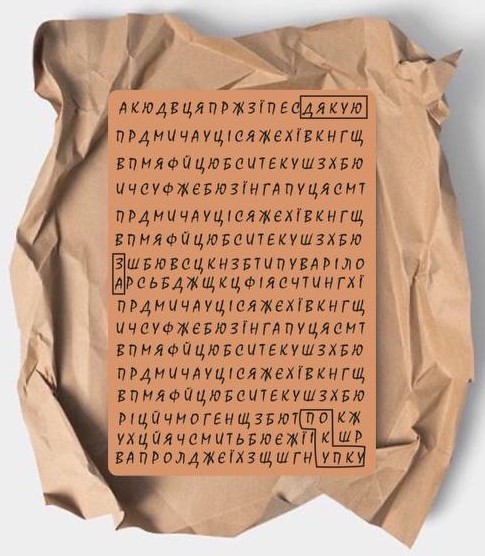 АКЮДВЦЯПРЖЗЇПЕСДЯКУЮ
ПРДМИЧАУЦІСЯЖЄХЇВКНГЩ
ВПМЯФЙЦЮБСИТЕКУШЗХБЮ
ИЧСУФЖЄБЮЗЇНГАПУЦЯСМТ
ПРДМИЧАУЦІСЯЖЄХЇВКНГЩ
ВПМЯФЙЦЮБСИТЕКУШЗХБЮ
ЗШБЮВСЦКНЗБТИПУВАРІЛО
АРСЬБДЖЩКЦФІЯСЧТИНГХЇ
ПРДМИЧАУЦІСЯЖЄХЇВКНГЩ
ИЧСУФЖЄБЮЗЇНГАПУЦЯСМТ
ВПМЯФЙЦЮБСИТЕКУШЗХБЮ
ПРДМИЧАУЦІСЯЖЄХЇВКНГЩ
ВПМЯФЙЦЮБСИТЕКУШЗХБЮ
РІЦЙЧМОГЕНЩЗБЮТПОКЖ
УХЦЙЯЧСМИТЬБЮЄЖЇІКШР
ВАПРОЛДЖЄЇХЗЩШГНУПКУ